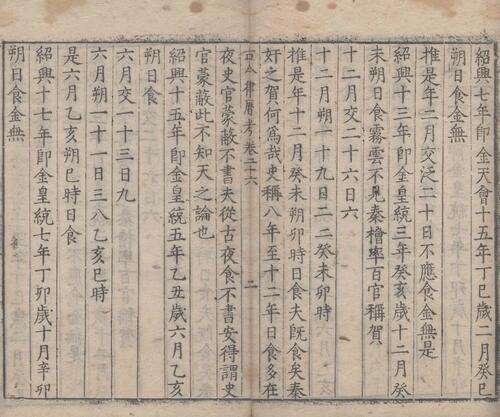 紹興七年即金天會十五年丁巳歲二月癸巳
朔日食金無
推是年二月交泛二十日不應食金無是
紹興十三年即金皇統三年癸亥歲十二月癸
未朔日食霧雲不見秦檜率百官稱賀
十二月交二十六日六
十二月朔一十九日二二癸未卯時
推是年十二月癸未朔卯時日食夫既食矣秦
奸之賀何爲哉史稱八年至十二年日食多在
古今律曆考卷二十六 二
夜史官蒙蔽不書夫從古夜食不書安得謂史
官蒙蔽此不知天之論也
紹興十五年即金皇統五年乙丑歲六月乙亥
朔日食
六月交一十三日九
六月朔一十一日三八乙亥巳時
是六月乙亥朔巳時日食
紹興十七年即金皇統七年丁卯歲十月辛卯
朔日食金無